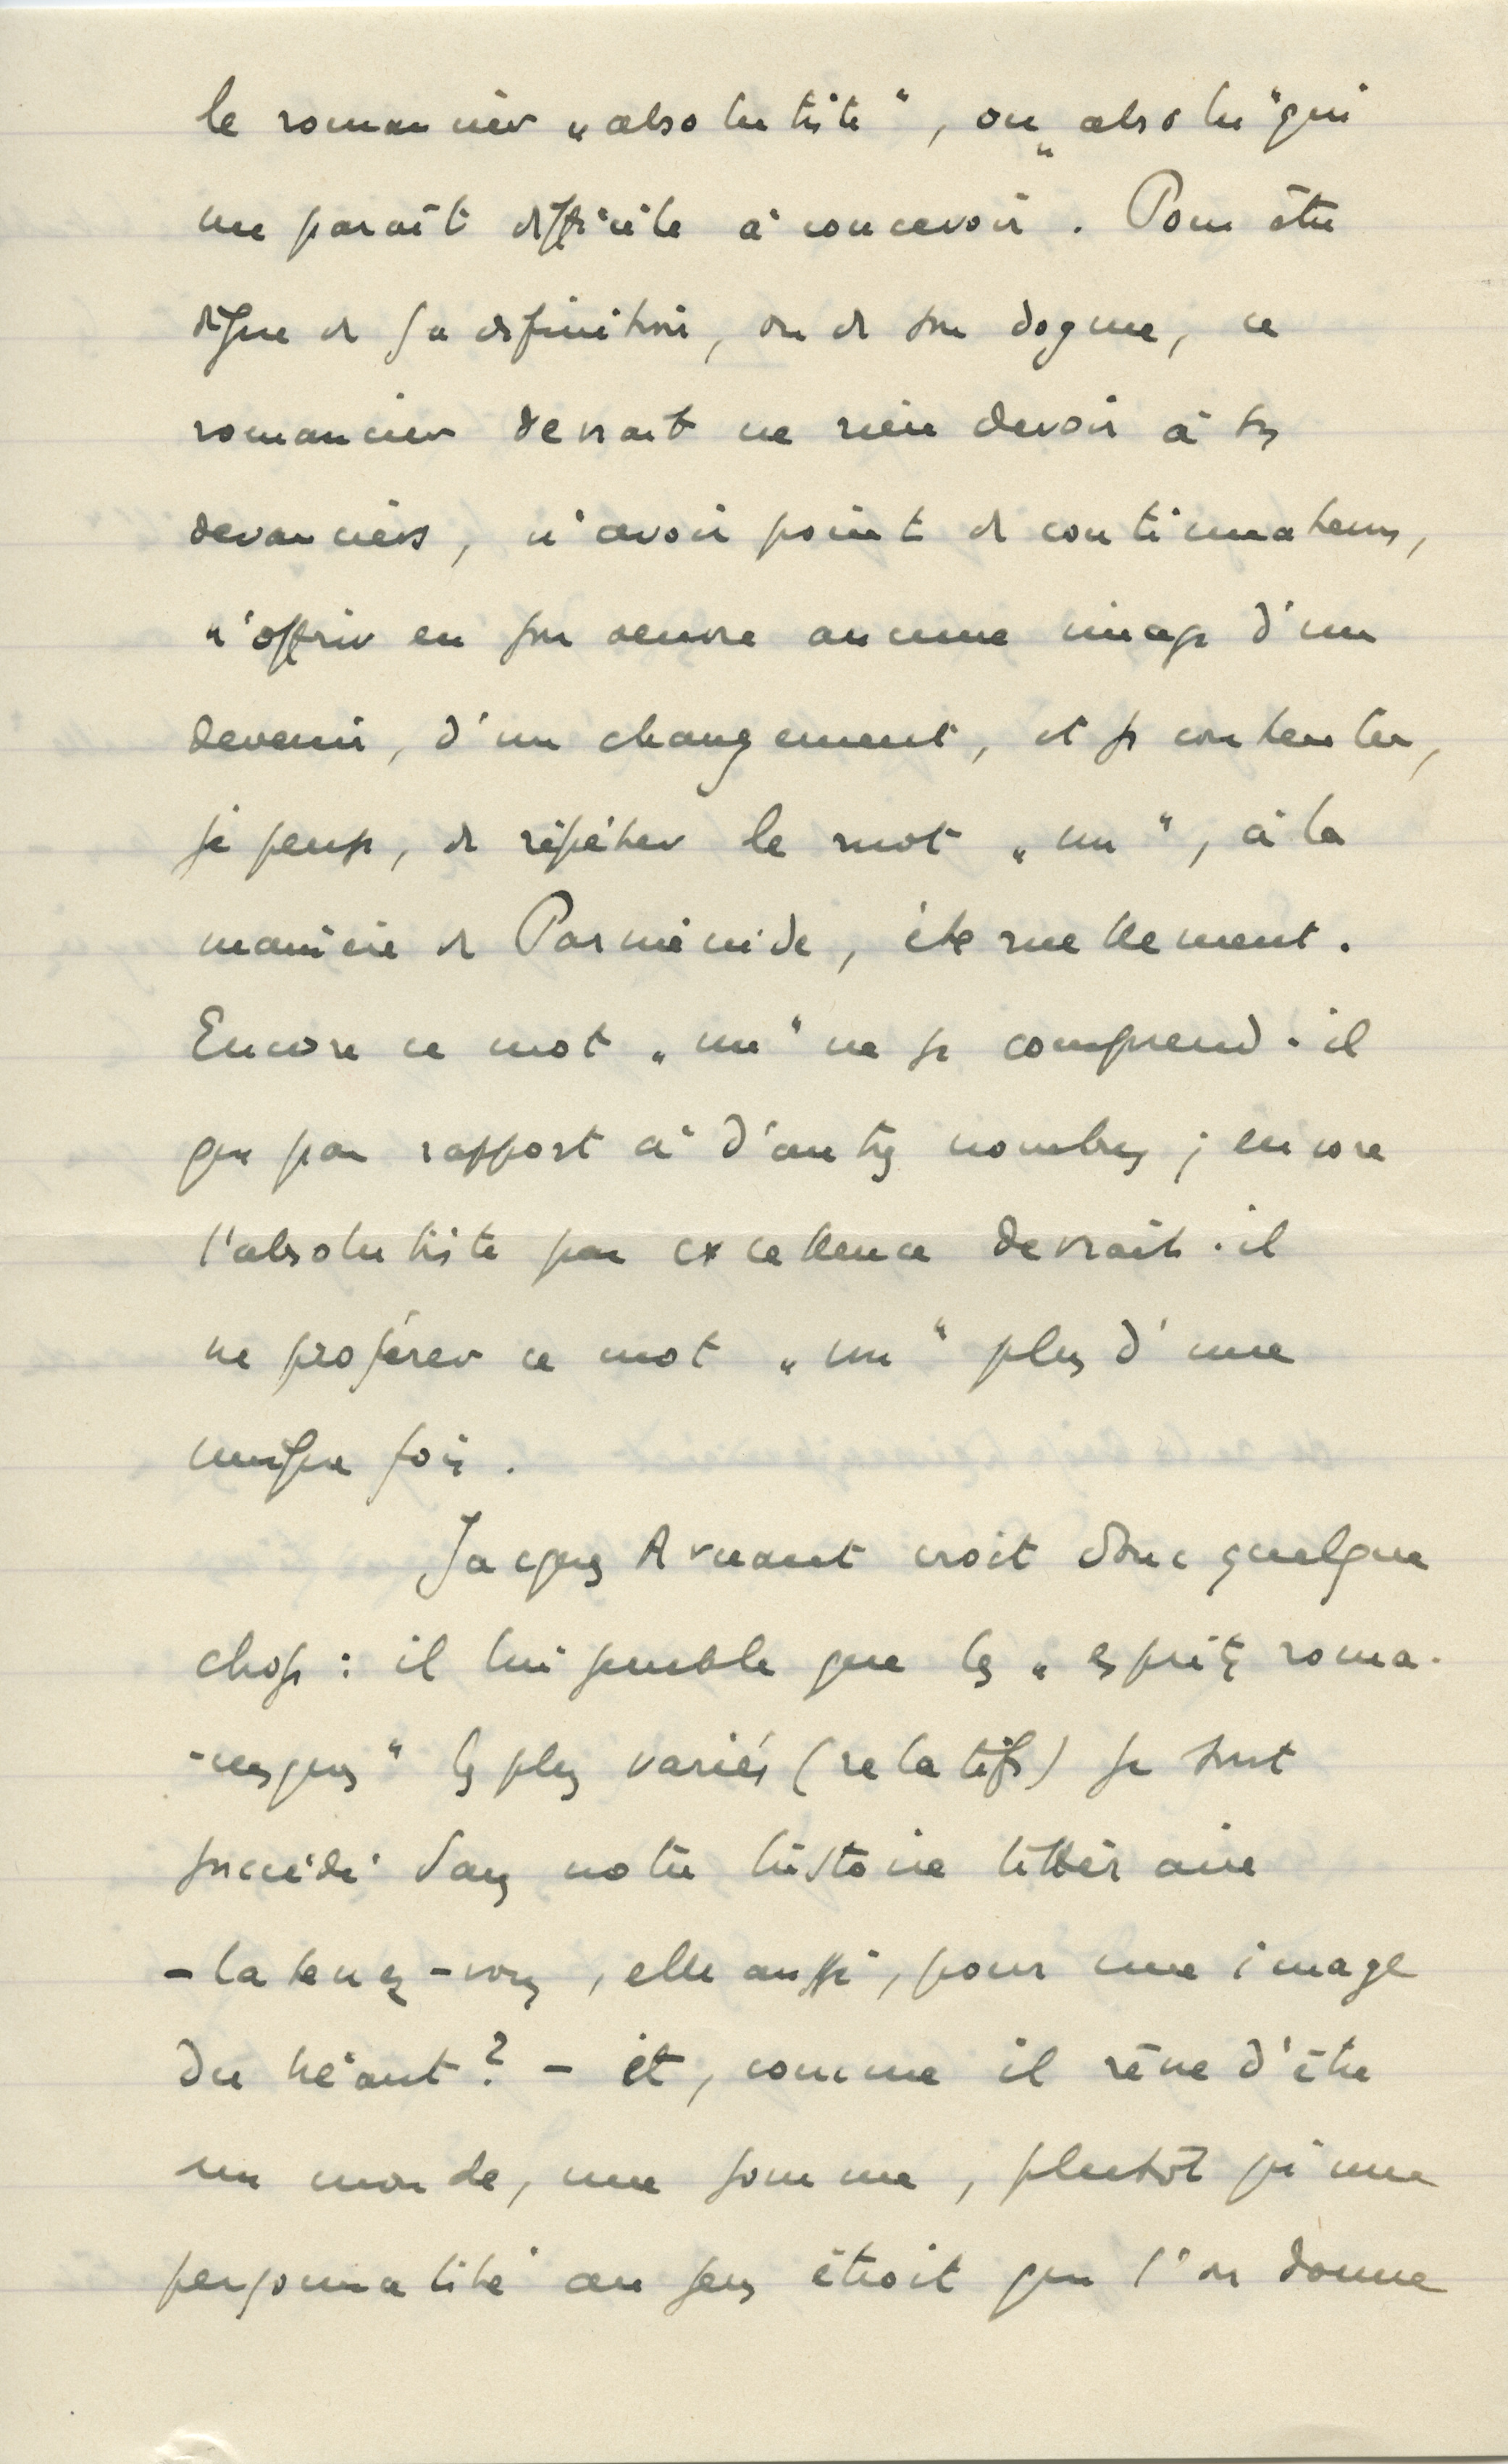 le romancier „absolutiste“, ou „absolu“ qui
me paraît difficile à concevoir. Pour être
digne de sa définition, ou de son dogme, ce
romancier devrait ne rien devoir à ses
devanciers, n'avoir point de continuateurs,
n'offrir en son œuvre aucune image d'un
devenir, d'un changement, et se contenter,
je pense, de répéter le mot „un“, à la
manière de Parménide, éternellement.
Encore ce mot „un“ ne se comprend-il
que par rapport à d'autres nombres ; encore
l'absolutiste par excellence devrait-il
ne proférer ce mot „un“ plus d'une
unique fois.
Jacques Arnaut croit donc quelque
chose : il lui semble que les „esprits roma-
-nesques“ les plus variés (relatifs) se sont
succédé dans notre histoire littéraire
– la tenez-vous, elle aussi, pour une image
du néant ? – et, comme il rêve d'être
un monde, une somme, plutôt qu'une
personnalité au sens étroit que l'on donne